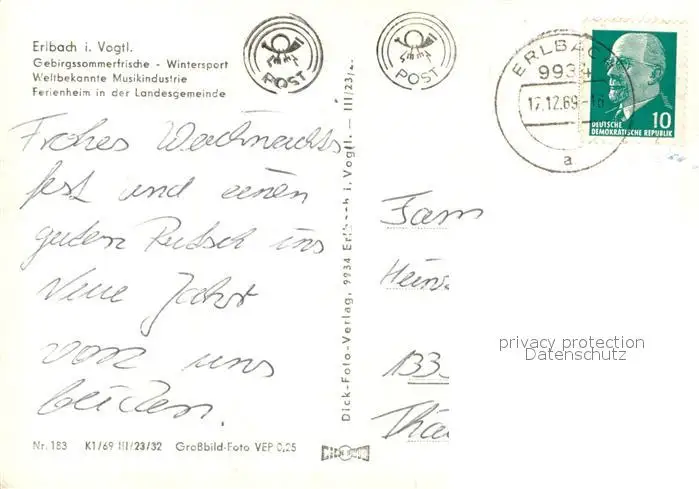 Erlbach i. Vogtl.
Gebirgssommerfrische - Wintersport
Weltbekannte Musikindustrie
Ferienheim in der Landesgemeinde
POST
POST
ERLBACH
9934
17.12.69-16
a
10
DEUTSCHE
DEMOKRATISCHE REPUBLIK
Frohes Weihnachts
fest und einen
guten Rutsch ins
Neue Jahr
von uns
beiden.
Dick-Foto-Verlag, 9934 Erlbach i. Vogtl. — III/23/
Fam
Heinz
privacy protection
Datenschutz
Nr. 183 K1/69 III/23/32 Großbild-Foto VEP 0,25